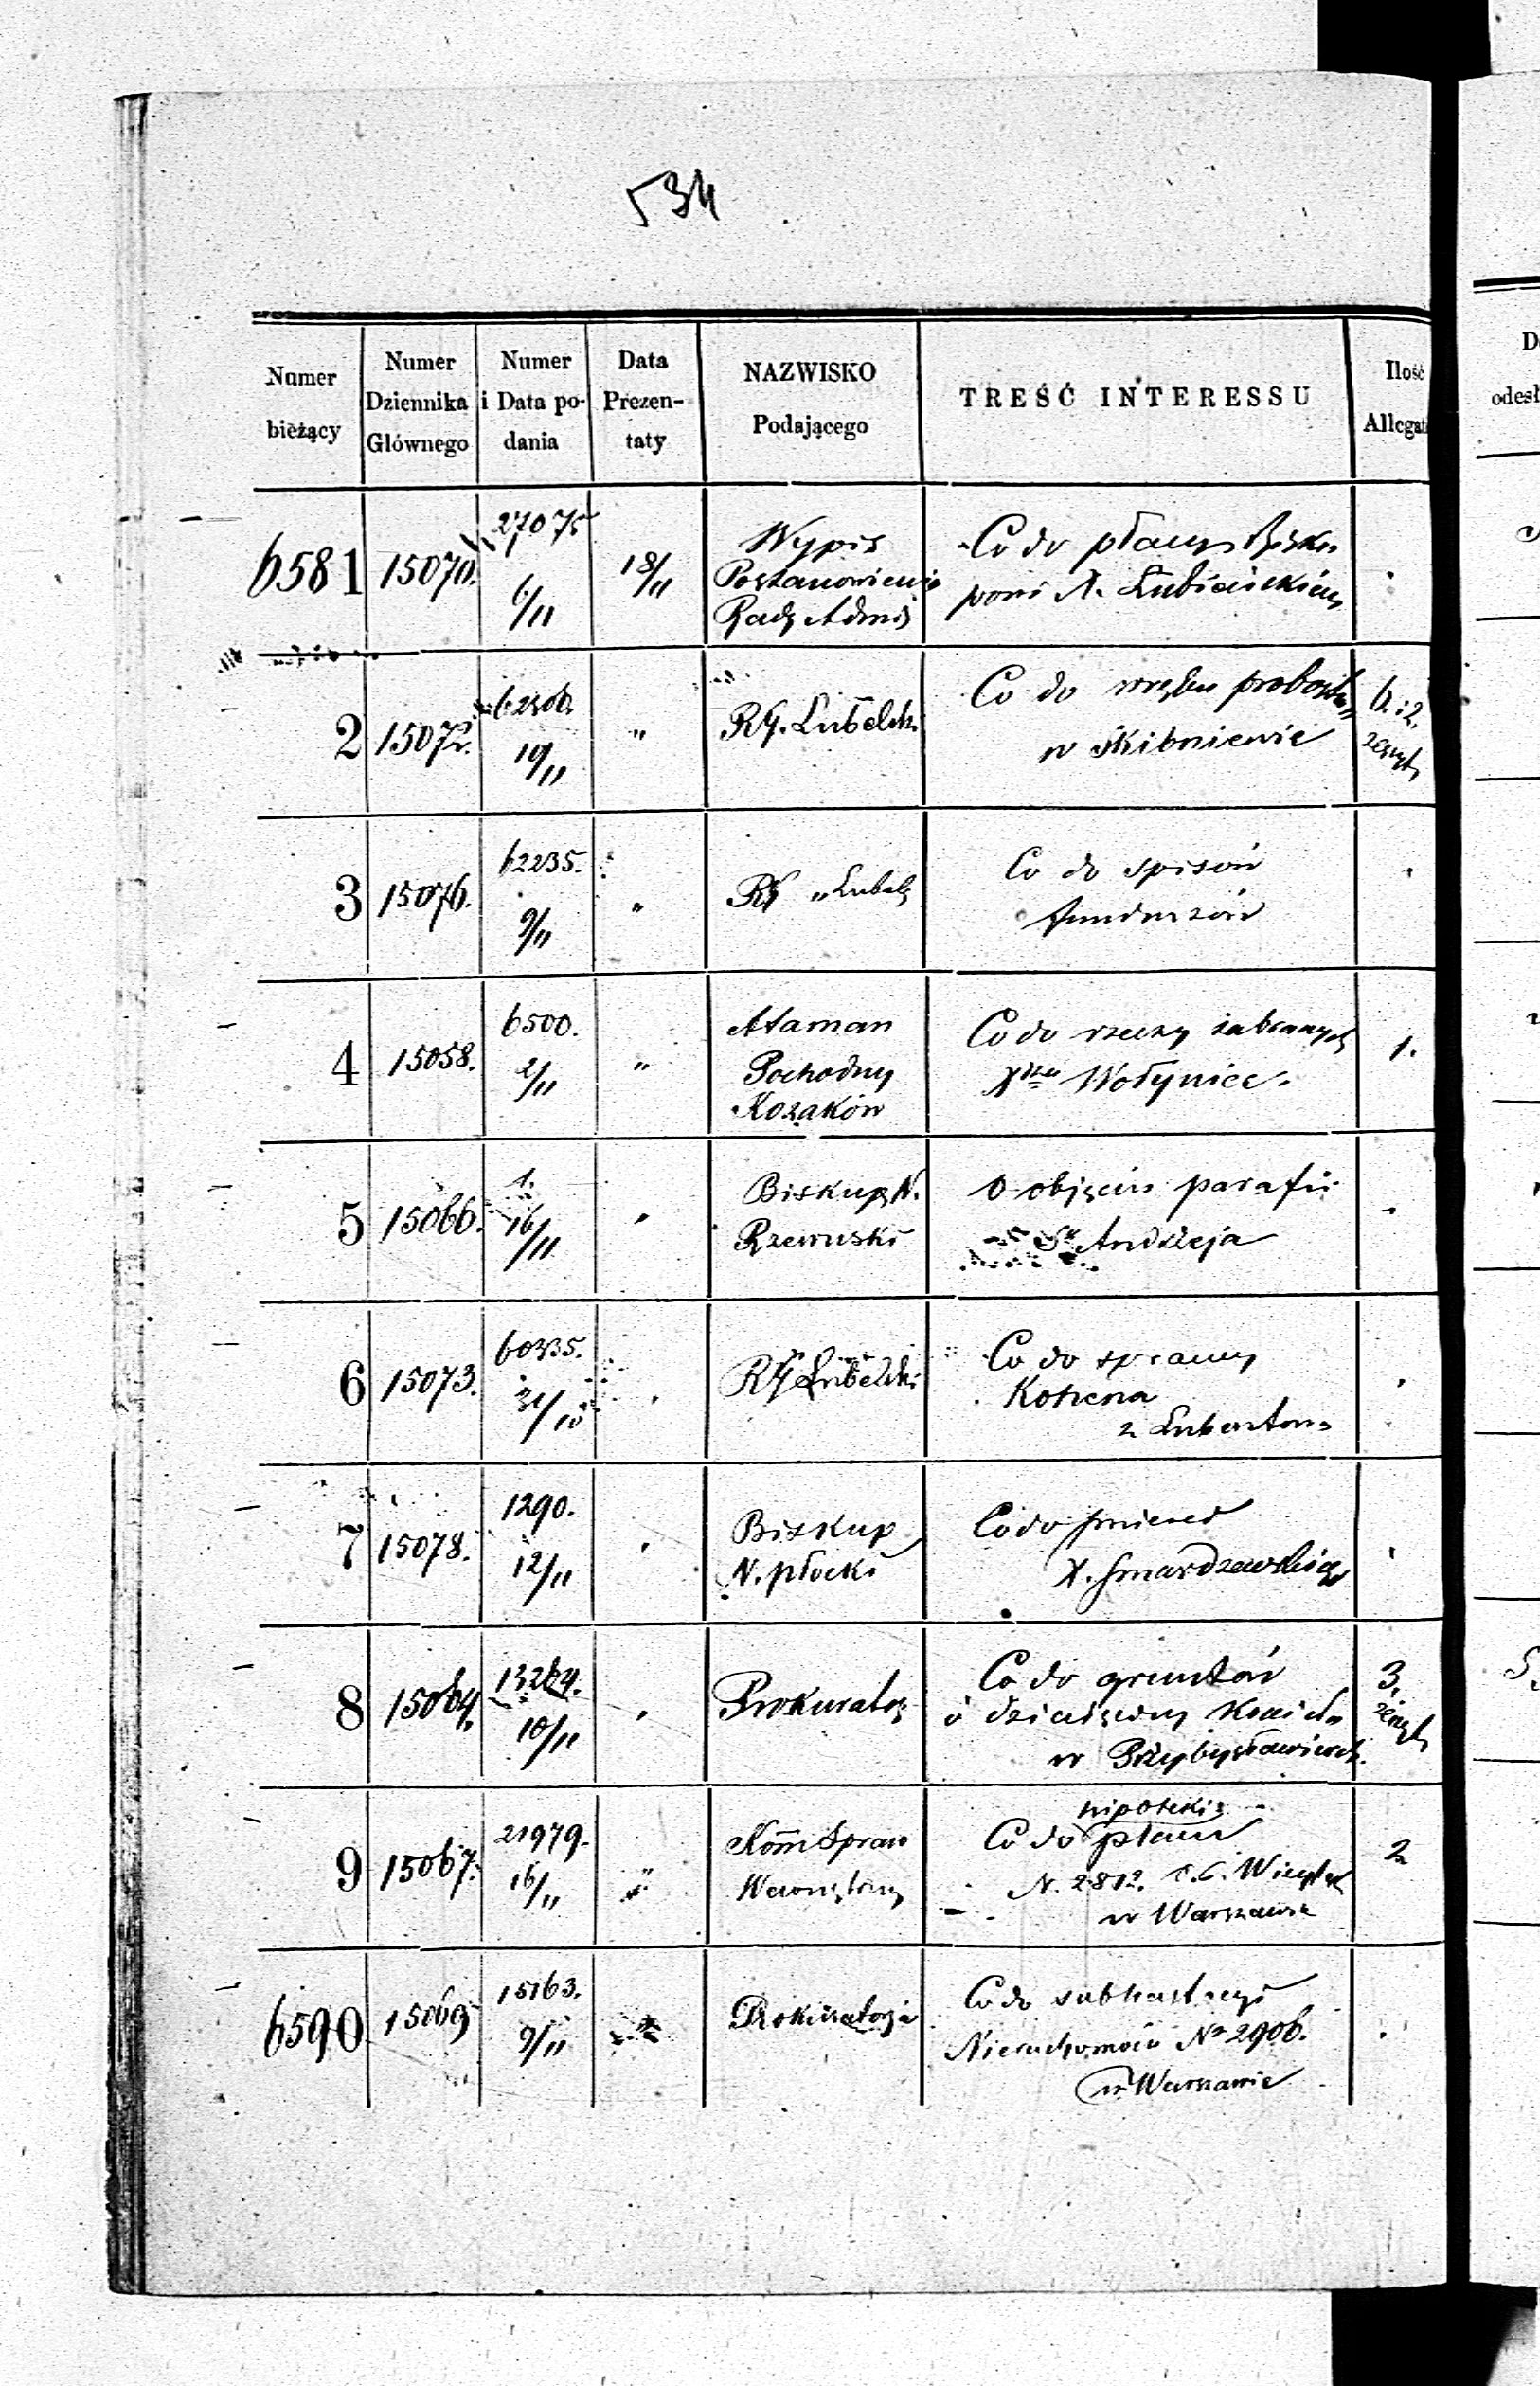 534
Numer bieżący | Numer Dziennika Głównego | Numer i Data podania | Data Prezentaty | NAZWISKO Podającego | TREŚĆ INTERESSU | Ilość Allegat
6581 | 15070. | 27075 6/11 | 18/11 | Wypis
Postanowienia
Rady Admi | Co do płacy
X. Lubieńskiemu
2 | 15072. | 10/11 | " | RG. Lubelsk. | Co do probostwa
w Skibniewie | 6. i 2.
zeszyt
3 | 15076. | 62235. 9/11 | " | RG Lubels | Co do spisów
funduszów
4 | 15058. | 6500. 2/11 | " | Ataman
Pochodny
Kozaków | Co do rzeczy zabranych
Wołyniec. | 1.
5 | 15066. | 1. 16/11 | " | Biskup N.
Rzewuski | O objęciu parafii
Sgo Andrzeja
6 | 15073. | 60335. 31/10 | " | RG Lubelski | Co do sprawy
Kohena
z Lubartowa
7 | 15078. | 1290. 12/11 | " | Biskup
N. płocki | Co do śmierci
X. Smardzewskiego
8 | 15064. | 13264. 10/11 | " | Prokurator | Co do gruntów
i dziesięciny
w Przybysławicach | 3.
zeszyt
9 | 15067. | 21979. 16/11 | " | Kom Spraw
Wewnętrzny | hipoteki
Co do placu
N. 2812. Wizytek
w Warszawie | 2
6590 | 15069 | 15163. 9/11 | " | Prokuratorja | Co do subhastacyi
Nieruchomości No 2906.
w Warszawie